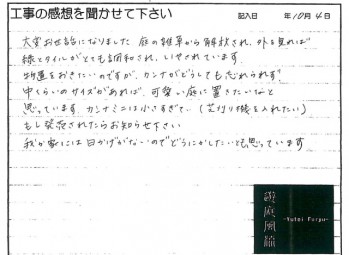 工事の感想を聞かせて下さい 記入日 年10月4日
大変お世話になりました 庭の雑草から解放され、外を見れば
緑とタイルがとても調和され、いやされています。
物置をおきたいのですが、カンナがどうしても忘れられず
中くらいのサイズがあれば、可愛い庭に置きたいなと
思っています カンナミニは小さすぎて。(芝刈り機を入れたい)
もし発売されたらお知らせ下さい
我が家には日かげがないのでどうにかしたいと思っています
遊庭風流
-Yutei Furyu-